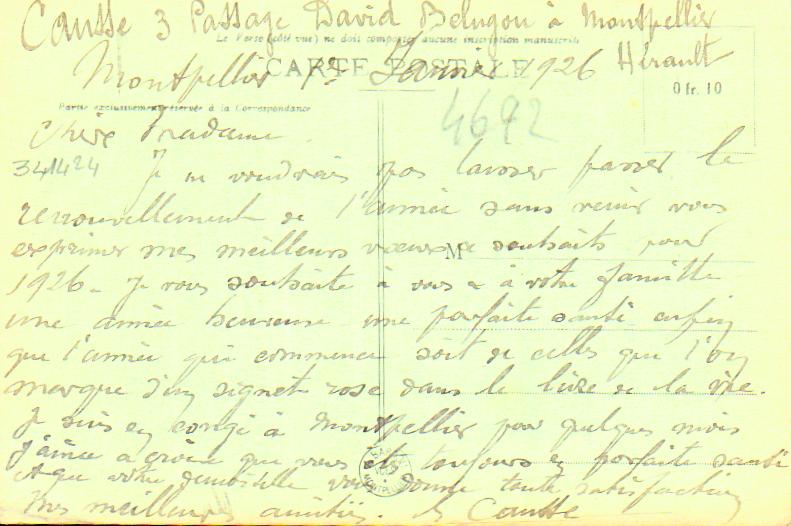 Causse 3 Passage David Belugou à Montpellier
Le Verso (côté vue) ne doit comporter aucune inscription manuscrite
Hérault
CARTE POSTALE
Montpellier 1er Janvier 1926
0 fr. 10
Partie exclusivement réservée à la Correspondance
4692
Chère Madame
341424
Je ne voudrais pas laisser passer le
renouvellement de l'année sans venir vous
exprimer mes meilleurs vœux & souhaits pour
M
1926 - Je vous souhaite à vous & à votre famille
une année heureuse une parfaite santé enfin
que l'année qui commence soit de celles que l'on
marque d'un signet rose dans le livre de la vie.
Je suis en congé à Montpellier pour quelques mois
J'aime à croire que vous êtes toujours en parfaite santé
& que votre demoiselle vous donne toute satisfaction
Mes meilleures amitiés. Causse